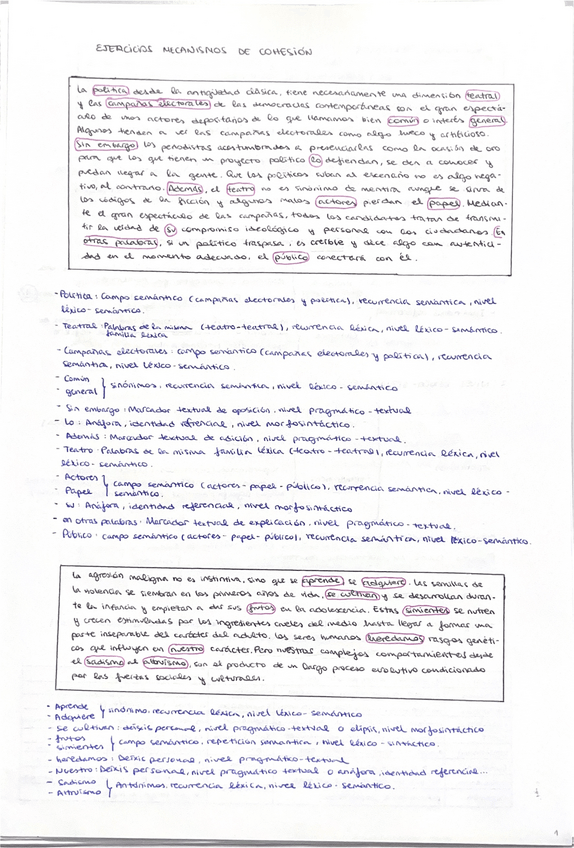 EJERCICIOS MECANISMOS DE COHESIÓN
La política desde la antigüedad clásica, tiene necesariamente una dimensión teatral
y las campañas electorales de las democracias contemporáneas son el gran espectácu-
lo de unos actores depositarios de lo que llamamos bien común o interés general.
Algunos tienden a ver las campañas electorales como algo hueco y artificioso.
Sin embargo los periodistas acostumbrados a presenciarlas como la ocasión de oro
para que los que tienen un proyecto político lo defiendan, se den a conocer y
puedan llegar a la gente. Que los políticos suban al escenario no es algo nega-
tivo, al contrario. Además, el teatro no es sinónimo de mentira aunque se sirva de
los códigos de la ficción y algunos malos actores pierdan el papel. Median-
te el gran espectáculo de las campañas, todos los candidatos tratan de transmi-
tir la verdad de su compromiso ideológico y personal con los ciudadanos En
otras palabras, si un político traspasa, es creíble y dice algo con autentici-
dad en el momento adecuado, el público conectará con él.
- Política: Campo semántico (campañas electorales y política), recurrencia semántica, nivel
léxico-semántico.
- Teatral: Palabras de la misma familia léxica (teatro-teatral), recurrencia léxica, nivel léxico-semántico.
- Campañas electorales: campo semántico (campañas electorales y política), recurrencia
semántica, nivel léxico-semántico.
- Común
- general } sinónimos, recurrencia semántica, nivel léxico-semántico
- Sin embargo: Marcador textual de oposición, nivel pragmático-textual
- Lo: Anáfora, identidad referencial, nivel morfosintáctico.
- Además: Marcador textual de adición, nivel pragmático-textual.
- Teatro: Palabras de la misma familia léxica (teatro-teatral), recurrencia léxica, nivel
léxico-semántico.
- Actores
- Papel } campo semántico (actores-papel-público), recurrencia semántica, nivel léxico-
semántico.
- su: Anáfora, identidad referencial, nivel morfosintáctico
- en otras palabras: Marcador textual de explicación, nivel pragmático-textual.
- Público: campo semántico (actores-papel-público), recurrencia semántica, nivel léxico-semántico.
La agresión maligna no es instintiva, sino que se aprende, se adquiere. Las semillas de
la violencia se siembran en los primeros años de vida, se cultivan y se desarrollan duran-
te la infancia y empiezan a dar sus frutos en la adolescencia. Estas simientes se nutren
y crecen estimuladas por los ingredientes crueles del medio hasta llegar a formar una
parte inseparable del carácter del adulto. Los seres humanos heredamos rasgos genéti-
cos que influyen en nuestro carácter. Pero nuestros complejos comportamientos desde
el sadismo al altruismo, son el producto de un largo proceso evolutivo condicionado
por las fuerzas sociales y culturales.
- Aprende
- Adquiere } sinónimo, recurrencia léxica, nivel léxico-semántico
- Se cultiven: deixis personal, nivel pragmático-textual o elipsis, nivel morfosintáctico
- frutos
- simientes } campo semántico, repetición semántica, nivel léxico-sintáctico.
- heredamos: Deixis personal, nivel pragmático-textual
- Nuestro: Deixis personal, nivel pragmático textual o anáfora, identidad referencial...
- Sadismo
- Altruismo } Antónimos, recurrencia léxica, nivel léxico-semántico.
1